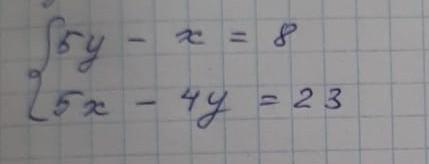 5y - x = 8
5x - 4y = 23